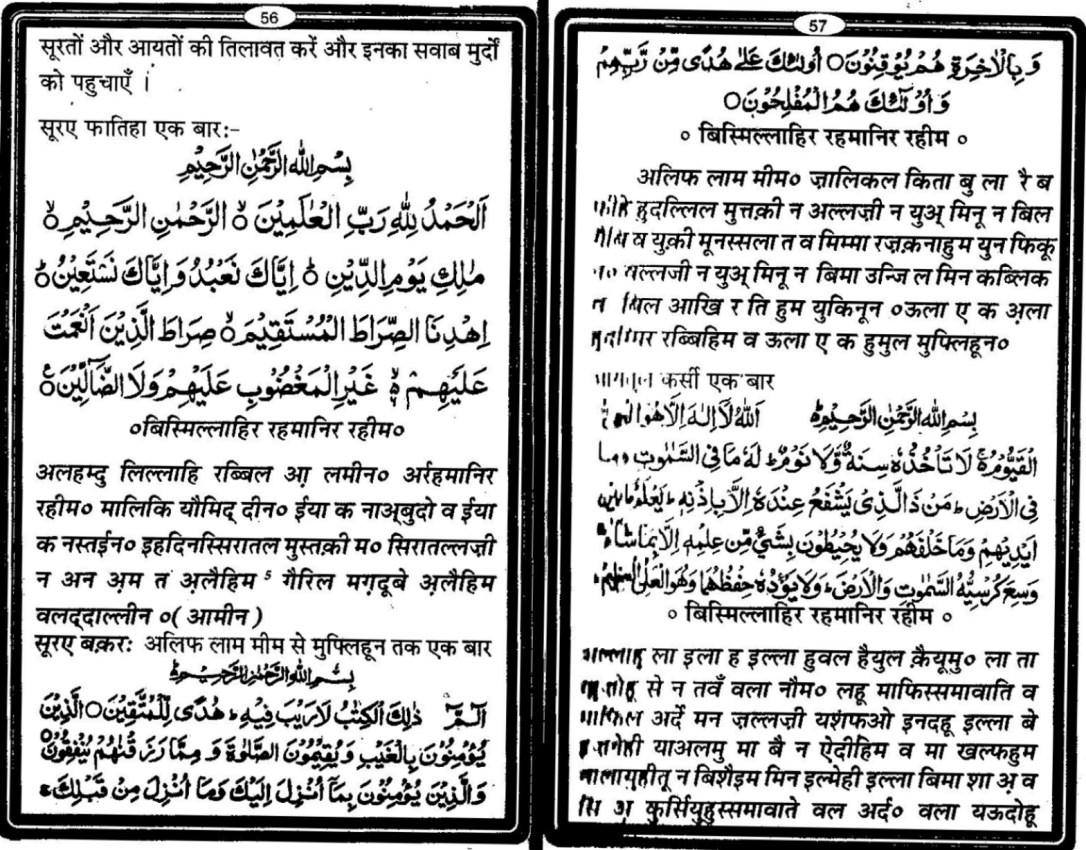 56
सूरतों और आयतों की तिलावत करें और इनका सवाब मुर्दों
को पहुचाएँ ।
सूरए फातिहा एक बार:-
بِسْمِ اللّٰهِ الرَّحْمٰنِ الرَّحِيْمِ
اَلْحَمْدُ لِلّٰهِ رَبِّ الْعٰلَمِيْنَ ۙ الرَّحْمٰنِ الرَّحِيْمِ ۙ
مٰلِكِ يَوْمِ الدِّيْنِ ؕ اِيَّاكَ نَعْبُدُ وَاِيَّاكَ نَسْتَعِيْنُ ؕ
اِهْدِنَا الصِّرَاطَ الْمُسْتَقِيْمَ ۙ صِرَاطَ الَّذِيْنَ اَنْعَمْتَ
عَلَيْهِمْ ۙ غَيْرِ الْمَغْضُوْبِ عَلَيْهِمْ وَلَا الضَّآلِّيْنَ ۧ
०बिस्मिल्लाहिर रहमानिर रहीम०
अलहम्दु लिल्लाहि रब्बिल आ़ लमीन० अर्रहमानिर
रहीम० मालिकि यौमिद् दीन० ईया क नाअ्बुदो व ईया
क नस्तईन० इहदिनस्सिरातल मुस्तक़ी म० सिरातल्लज़ी
न अन अ़म त अ़लैहिम ५ गैरिल मग़दूबे अ़लैहिम
वलद्दाल्लीन ०( आमीन )
सूरए बक़रः अलिफ लाम मीम से मुफ्लिहून तक एक बार
بِسْمِ اللّٰهِ الرَّحْمٰنِ الرَّحِيْمِ
الٓمّٓ ذٰلِكَ الْكِتٰبُ لَا رَيْبَ فِيْهِ ۛ هُدًى لِّلْمُتَّقِيْنَ ○ الَّذِيْنَ
يُؤْمِنُوْنَ بِالْغَيْبِ وَيُقِيْمُوْنَ الصَّلٰوةَ وَمِمَّا رَزَقْنٰهُمْ يُنْفِقُوْنَ
وَالَّذِيْنَ يُؤْمِنُوْنَ بِمَآ اُنْزِلَ اِلَيْكَ وَمَآ اُنْزِلَ مِنْ قَبْلِكَ
57
وَبِالْاٰخِرَةِ هُمْ يُوْقِنُوْنَ ○ اُولٰٓئِكَ عَلٰى هُدًى مِّنْ رَّبِّهِمْ
وَاُولٰٓئِكَ هُمُ الْمُفْلِحُوْنَ ○
० बिस्मिल्लाहिर रहमानिर रहीम ०
अलिफ लाम मीम० ज़ालिकल किता बु ला रै ब
हुदल्लिल मुत्तक़ी न अल्लज़ी न युअ् मिनू न बिल
व युक़ी मूनस्सला त व मिम्मा रज़क़नाहुम युन फिकू
वल्लजी न युअ् मिनू न बिमा उन्जि ल मिन कब्लिक
बिल आखि र ति हुम युकिनून ०ऊला ए क अ़ला
रब्बिहिम व ऊला ए क हुमुल मुफ्लिहून०
कर्सी एक बार
بِسْمِ اللّٰهِ الرَّحْمٰنِ الرَّحِيْمِ اَللّٰهُ لَآ اِلٰهَ اِلَّا هُوَ
الْقَيُّوْمُ ۚ لَا تَاْخُذُهٗ سِنَةٌ وَّلَا نَوْمٌ ؕ لَهٗ مَا فِى السَّمٰوٰتِ وَمَا
فِى الْاَرْضِ ؕ مَنْ ذَا الَّذِىْ يَشْفَعُ عِنْدَهٗٓ اِلَّا بِاِذْنِهٖ ؕ يَعْلَمُ مَا بَيْنَ
اَيْدِيْهِمْ وَمَا خَلْفَهُمْ وَلَا يُحِيْطُوْنَ بِشَىْءٍ مِّنْ عِلْمِهٖٓ اِلَّا بِمَا شَآءَ
وَسِعَ كُرْسِيُّهُ السَّمٰوٰتِ وَالْاَرْضَ ۚ وَلَا يَـُٔوْدُهٗ حِفْظُهُمَا وَهُوَ الْعَلِىُّ الْعَظِيْمُ
० बिस्मिल्लाहिर रहमानिर रहीम ०
अल्लाहु ला इला ह इल्ला हुवल हैयुल क़ैयूमु० ला ता
से न तवँ वला नौम० लहू माफिस्समावाति व
अर्दे मन ज़ल्लज़ी यशंफओ इनदहू इल्ला बे
याअलमु मा बै न ऐदीहिम व मा खल्फहुम
न बिशैइम मिन इल्मेही इल्ला बिमा शा अ़ व
कुर्सियुहुस्समावाते वल अर्द० वला यऊदोहू